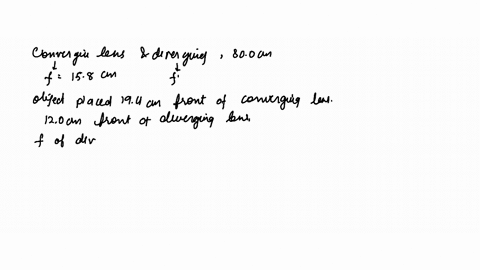 Convergin lens & diverging, 80.0 cm
↓ ↓
f = 15.8 cm f:
object placed 19.4 cm front of converging lens.
12.0 cm front of diverging lens
f of div